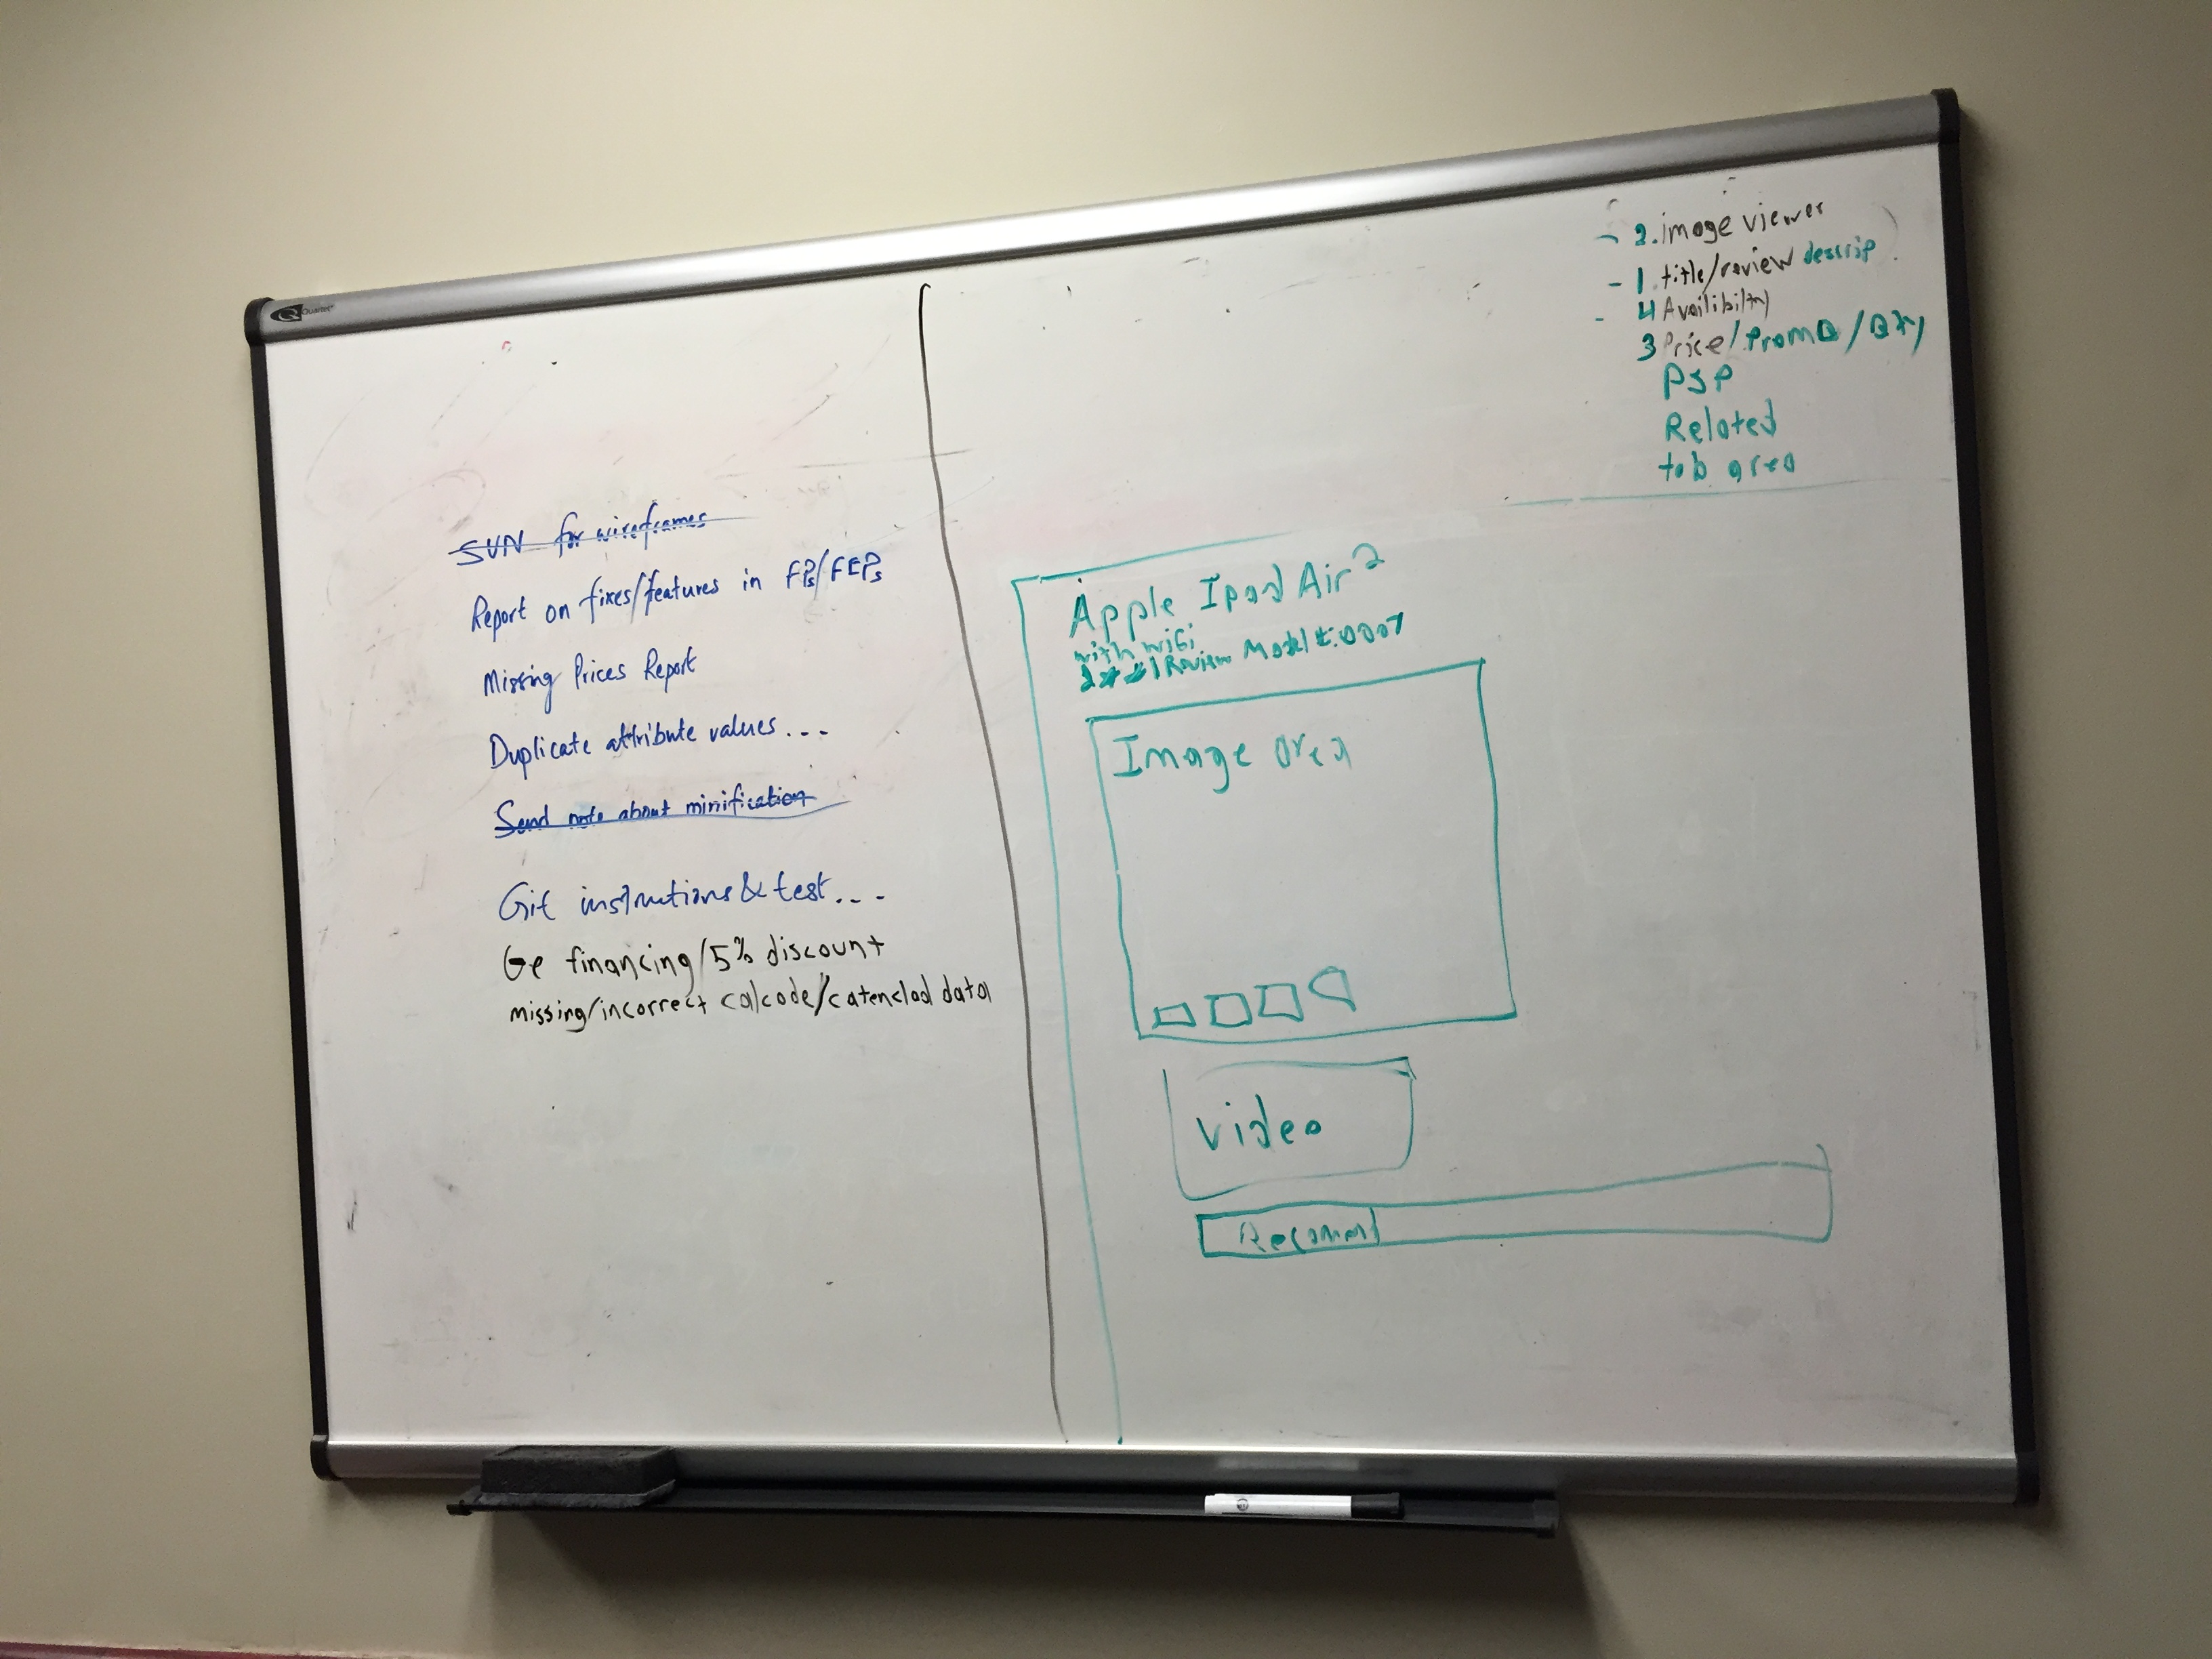 Quartet
SVN for wireframes
Report on fixes/features in FPs/FEPs
Missing Prices Report
Duplicate attribute values...
Send note about minification
Git instructions & test...
Ge financing/5% discount
missing/incorrect calcode/ data
- 2. image viewer
- 1. title/review descrip
- 4 Availibilty
3 Price/Promo/Qty
PSP
Related
tab area
Apple Ipad Air 2
with wifi
Review Model #:0007
Image area
Video
Recomend